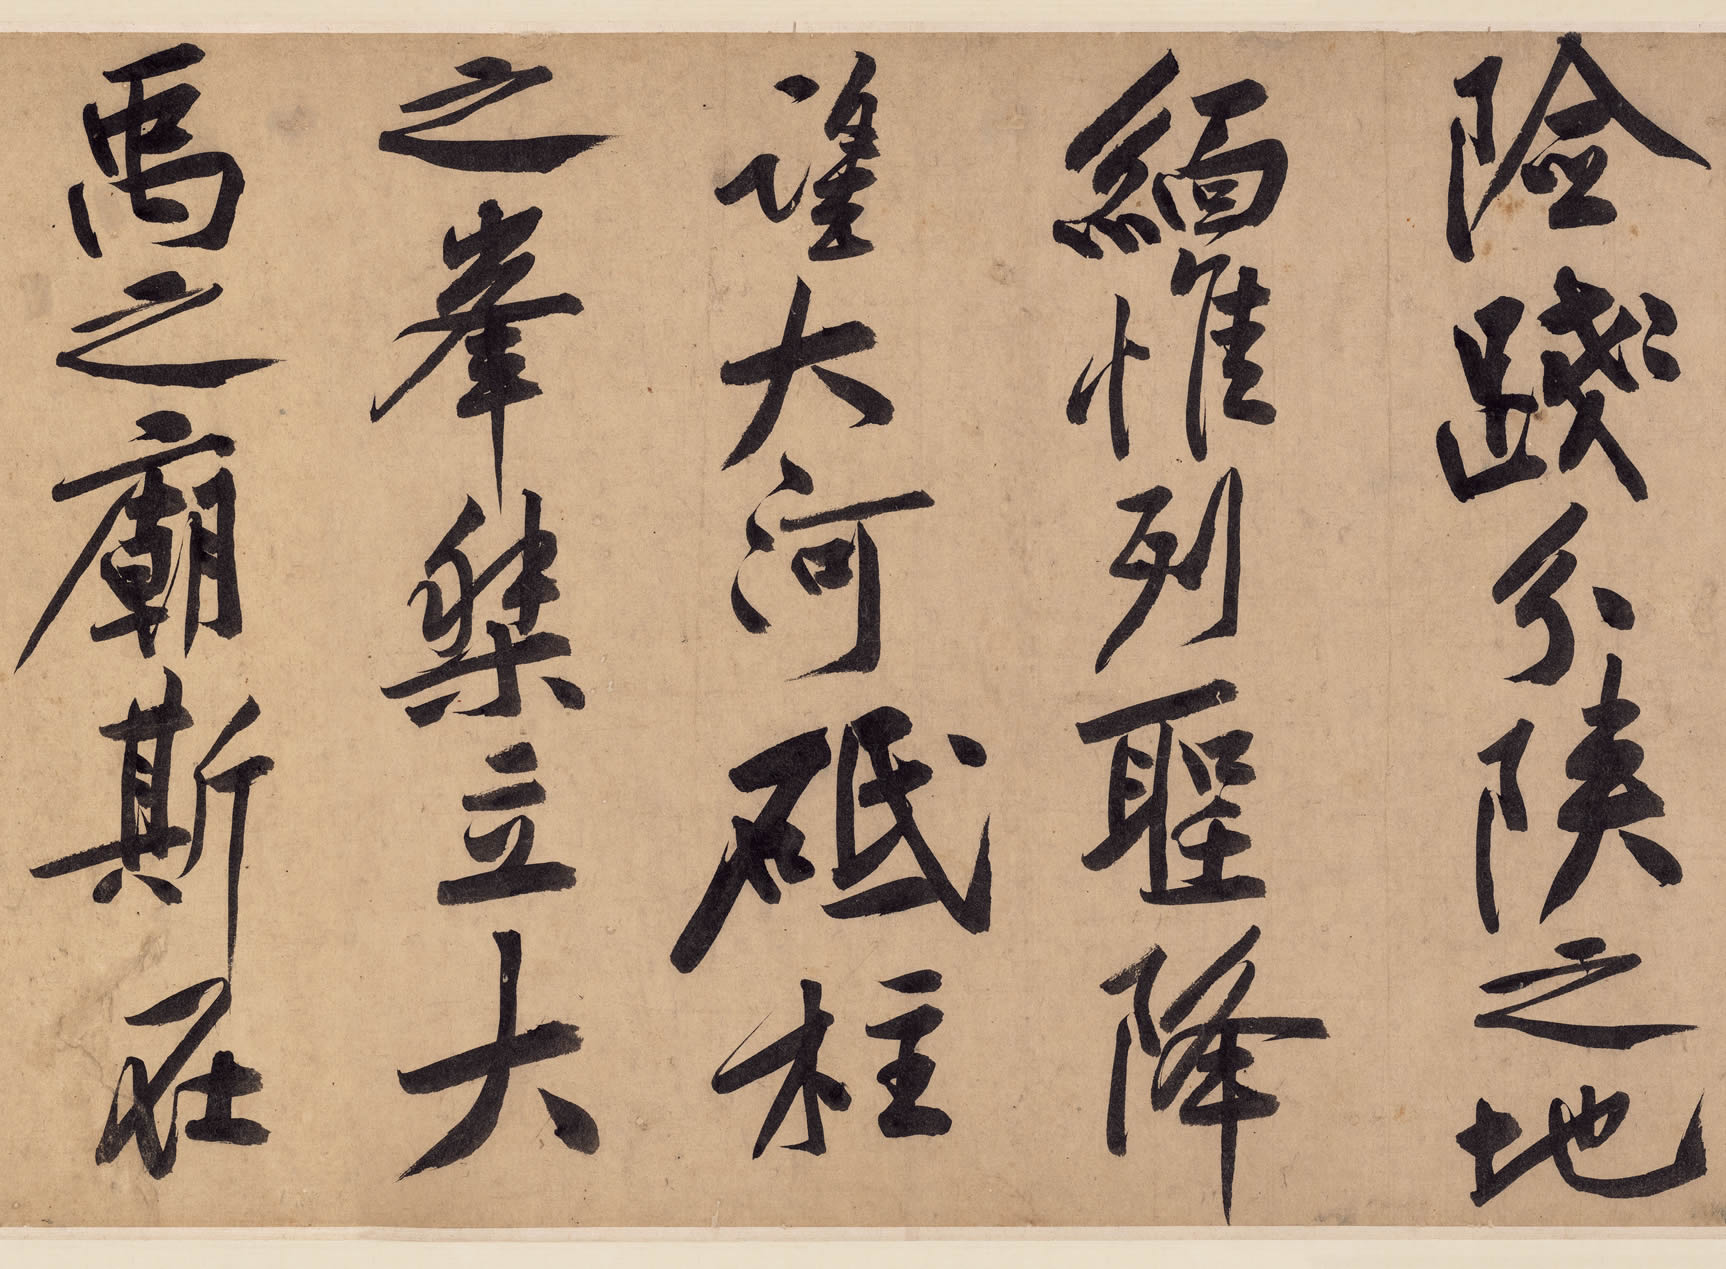 險踐分陝之地
緬惟列聖降
望大河砥柱
之峯桀立大
禹之廟斯在